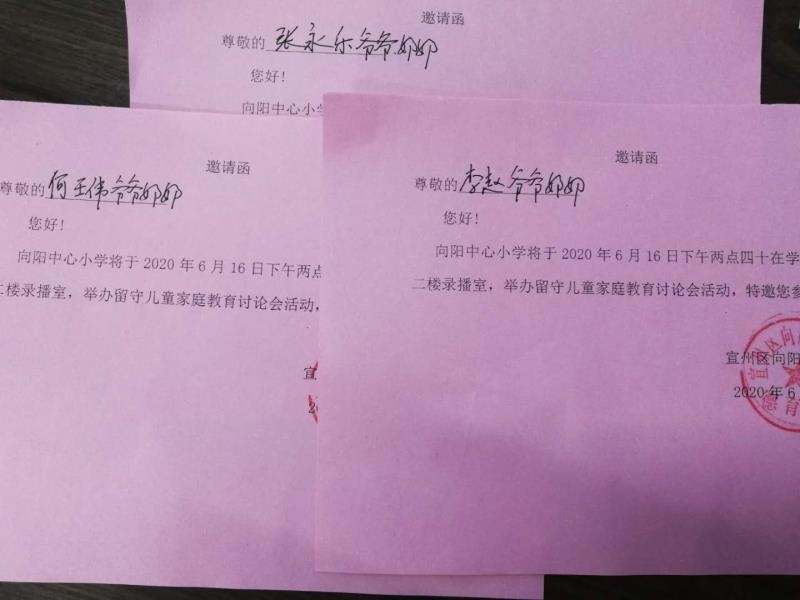 邀请函
尊敬的 张永乐爷爷奶奶
您好！
向阳中心小学
邀请函
尊敬的 何王伟爷爷奶奶
您好！
向阳中心小学将于 2020 年 6 月 16 日下午两点
二楼录播室，举办留守儿童家庭教育讨论会活动，
宣
2
邀请函
尊敬的 李赵爷爷奶奶
您好！
向阳中心小学将于 2020 年 6 月 16 日下午两点四十在学
二楼录播室，举办留守儿童家庭教育讨论会活动，特邀您参
宣州区向阳
2020 年 6
宣州区向
德育